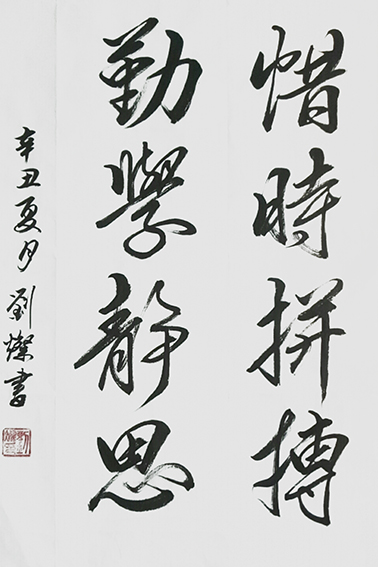 惜時拼搏
勤學靜思
辛丑夏月劉燦書